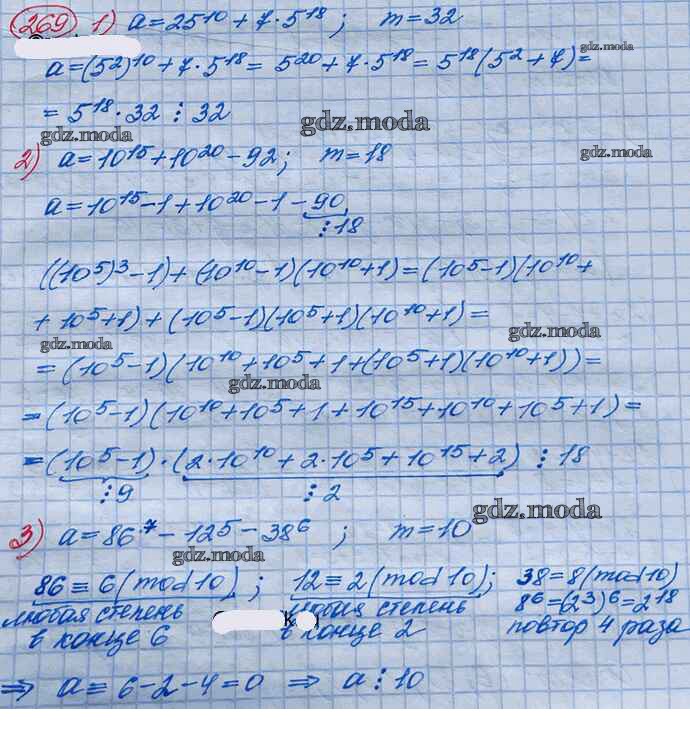 269 1) a = 25¹⁰ + 7·5¹⁸ ; m = 32
gdz.moda
a = (5²)¹⁰ + 7·5¹⁸ = 5²⁰ + 7·5¹⁸ = 5¹⁸(5² + 7) =
= 5¹⁸·32 ⋮ 32
gdz.moda
gdz.moda
2) a = 10¹⁵ + 10²⁰ - 92; m = 18
gdz.moda
a = 10¹⁵ - 1 + 10²⁰ - 1 - 90
⋮ 18
((10⁵)³ - 1) + (10¹⁰ - 1)(10¹⁰ + 1) = (10⁵ - 1)(10¹⁰ +
+ 10⁵ + 1) + (10⁵ - 1)(10⁵ + 1)(10¹⁰ + 1) =
gdz.moda
gdz.moda
= (10⁵ - 1)(10¹⁰ + 10⁵ + 1 + (10⁵ + 1)(10¹⁰ + 1)) =
gdz.moda
= (10⁵ - 1)(10¹⁰ + 10⁵ + 1 + 10¹⁵ + 10¹⁰ + 10⁵ + 1) =
= (10⁵ - 1)·(2·10¹⁰ + 2·10⁵ + 10¹⁵ + 2) ⋮ 18
⋮ 9 ⋮ 2
gdz.moda
3) a = 86⁷ - 12⁵ - 38⁶ ; m = 10
gdz.moda
86 ≡ 6 (mod 10) ; 12 ≡ 2 (mod 10); 38 = 8 (mod 10)
любая степень любая степень 8⁶ = (2³)⁶ = 2¹⁸
в конце 6 в конце 2 повтор 4 раза
⇒ a ≡ 6 - 2 - 4 = 0 ⇒ a ⋮ 10